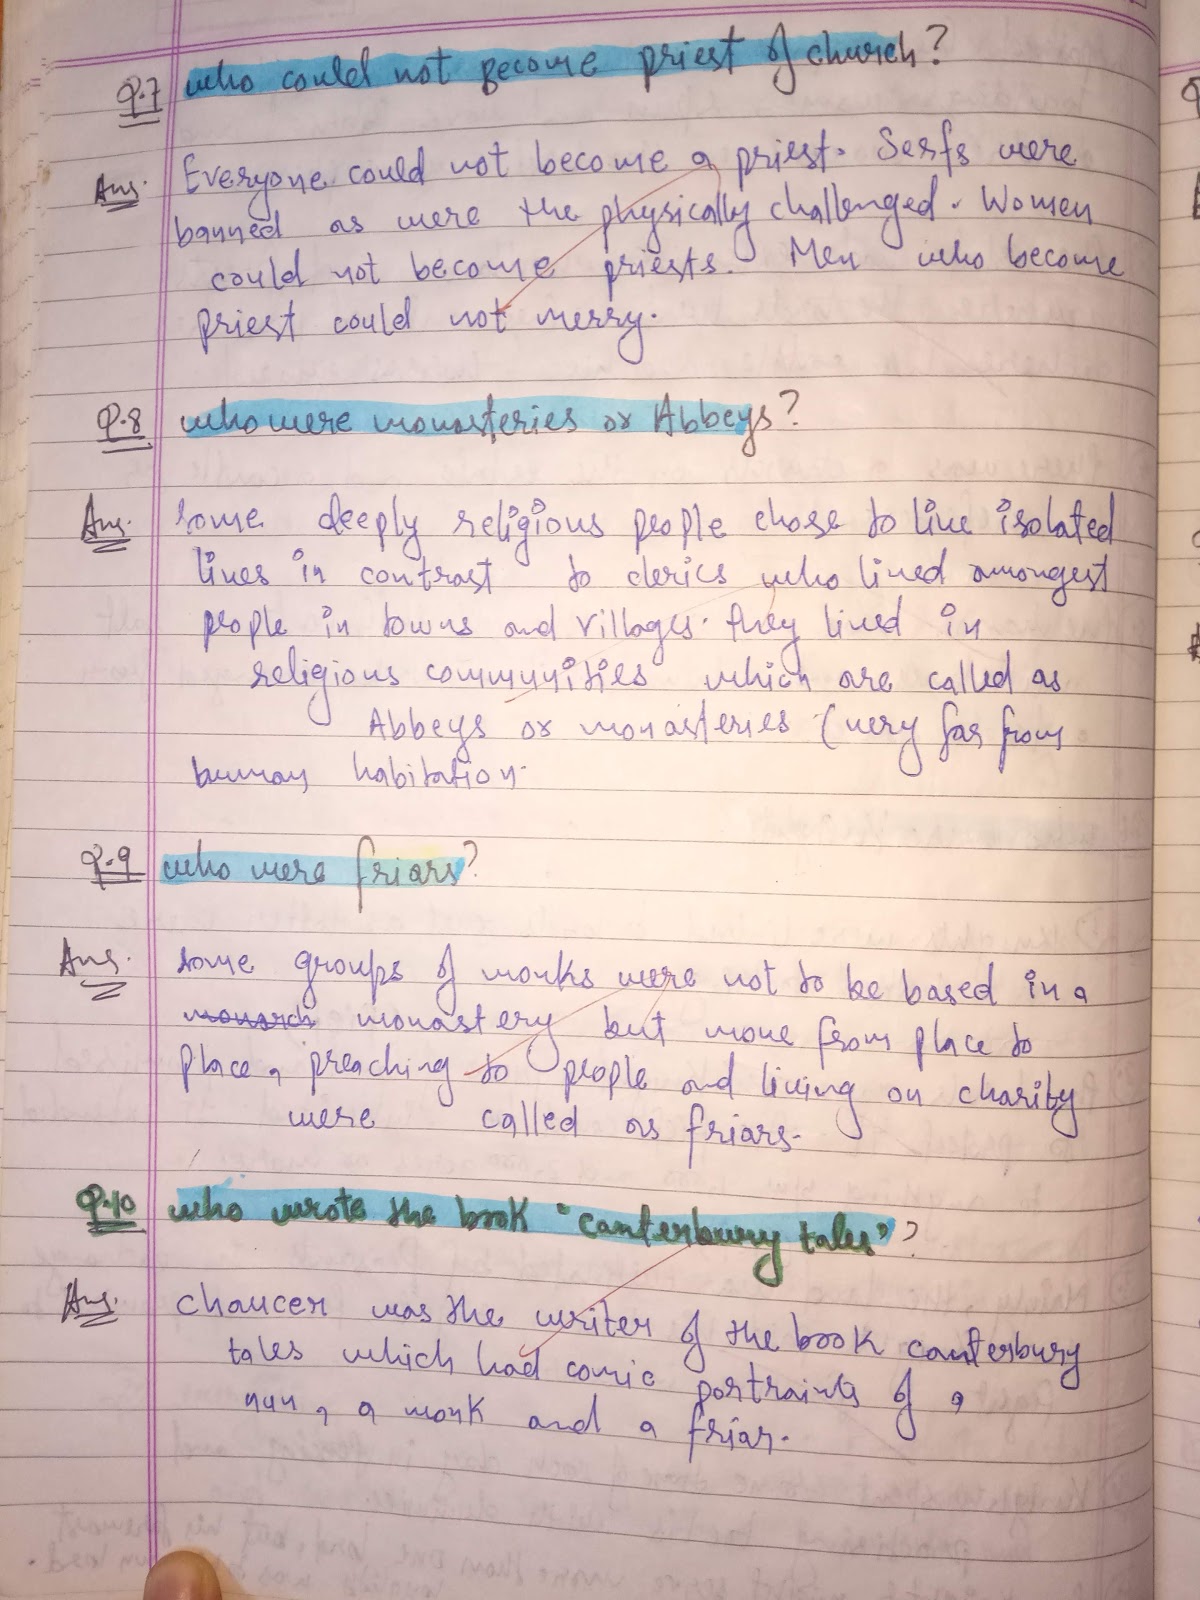 Q.7 who could not Become priest of church?
Ans. Everyone could not become a priest. Serfs were
banned as were the physically challenged. Women
could not become priests. Men who become
priest could not merry.
Q.8 who were monasteries or Abbeys?
Ans. some deeply religious people chose to live isolated
lives in contrast to clerics who lived amongest
people in towns and villages. they lived in
religious communities which are called as
Abbeys or monasteries (very far from
human habitation.
Q.9 who were friars?
Ans. some groups of monks were not to be based in a
monarch monastery but move from place to
place, preaching to people and living on charity
were called as friars.
Q.10 who wrote the book "canterbury tales"?
Ans. chaucer was the writer of the book canterbury
tales which had comic portraints of a
nun, a monk and a friar.